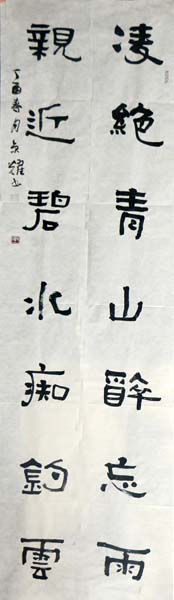 凌絕青山醉忘雨
親近碧水痴釣雲
丁酉春月